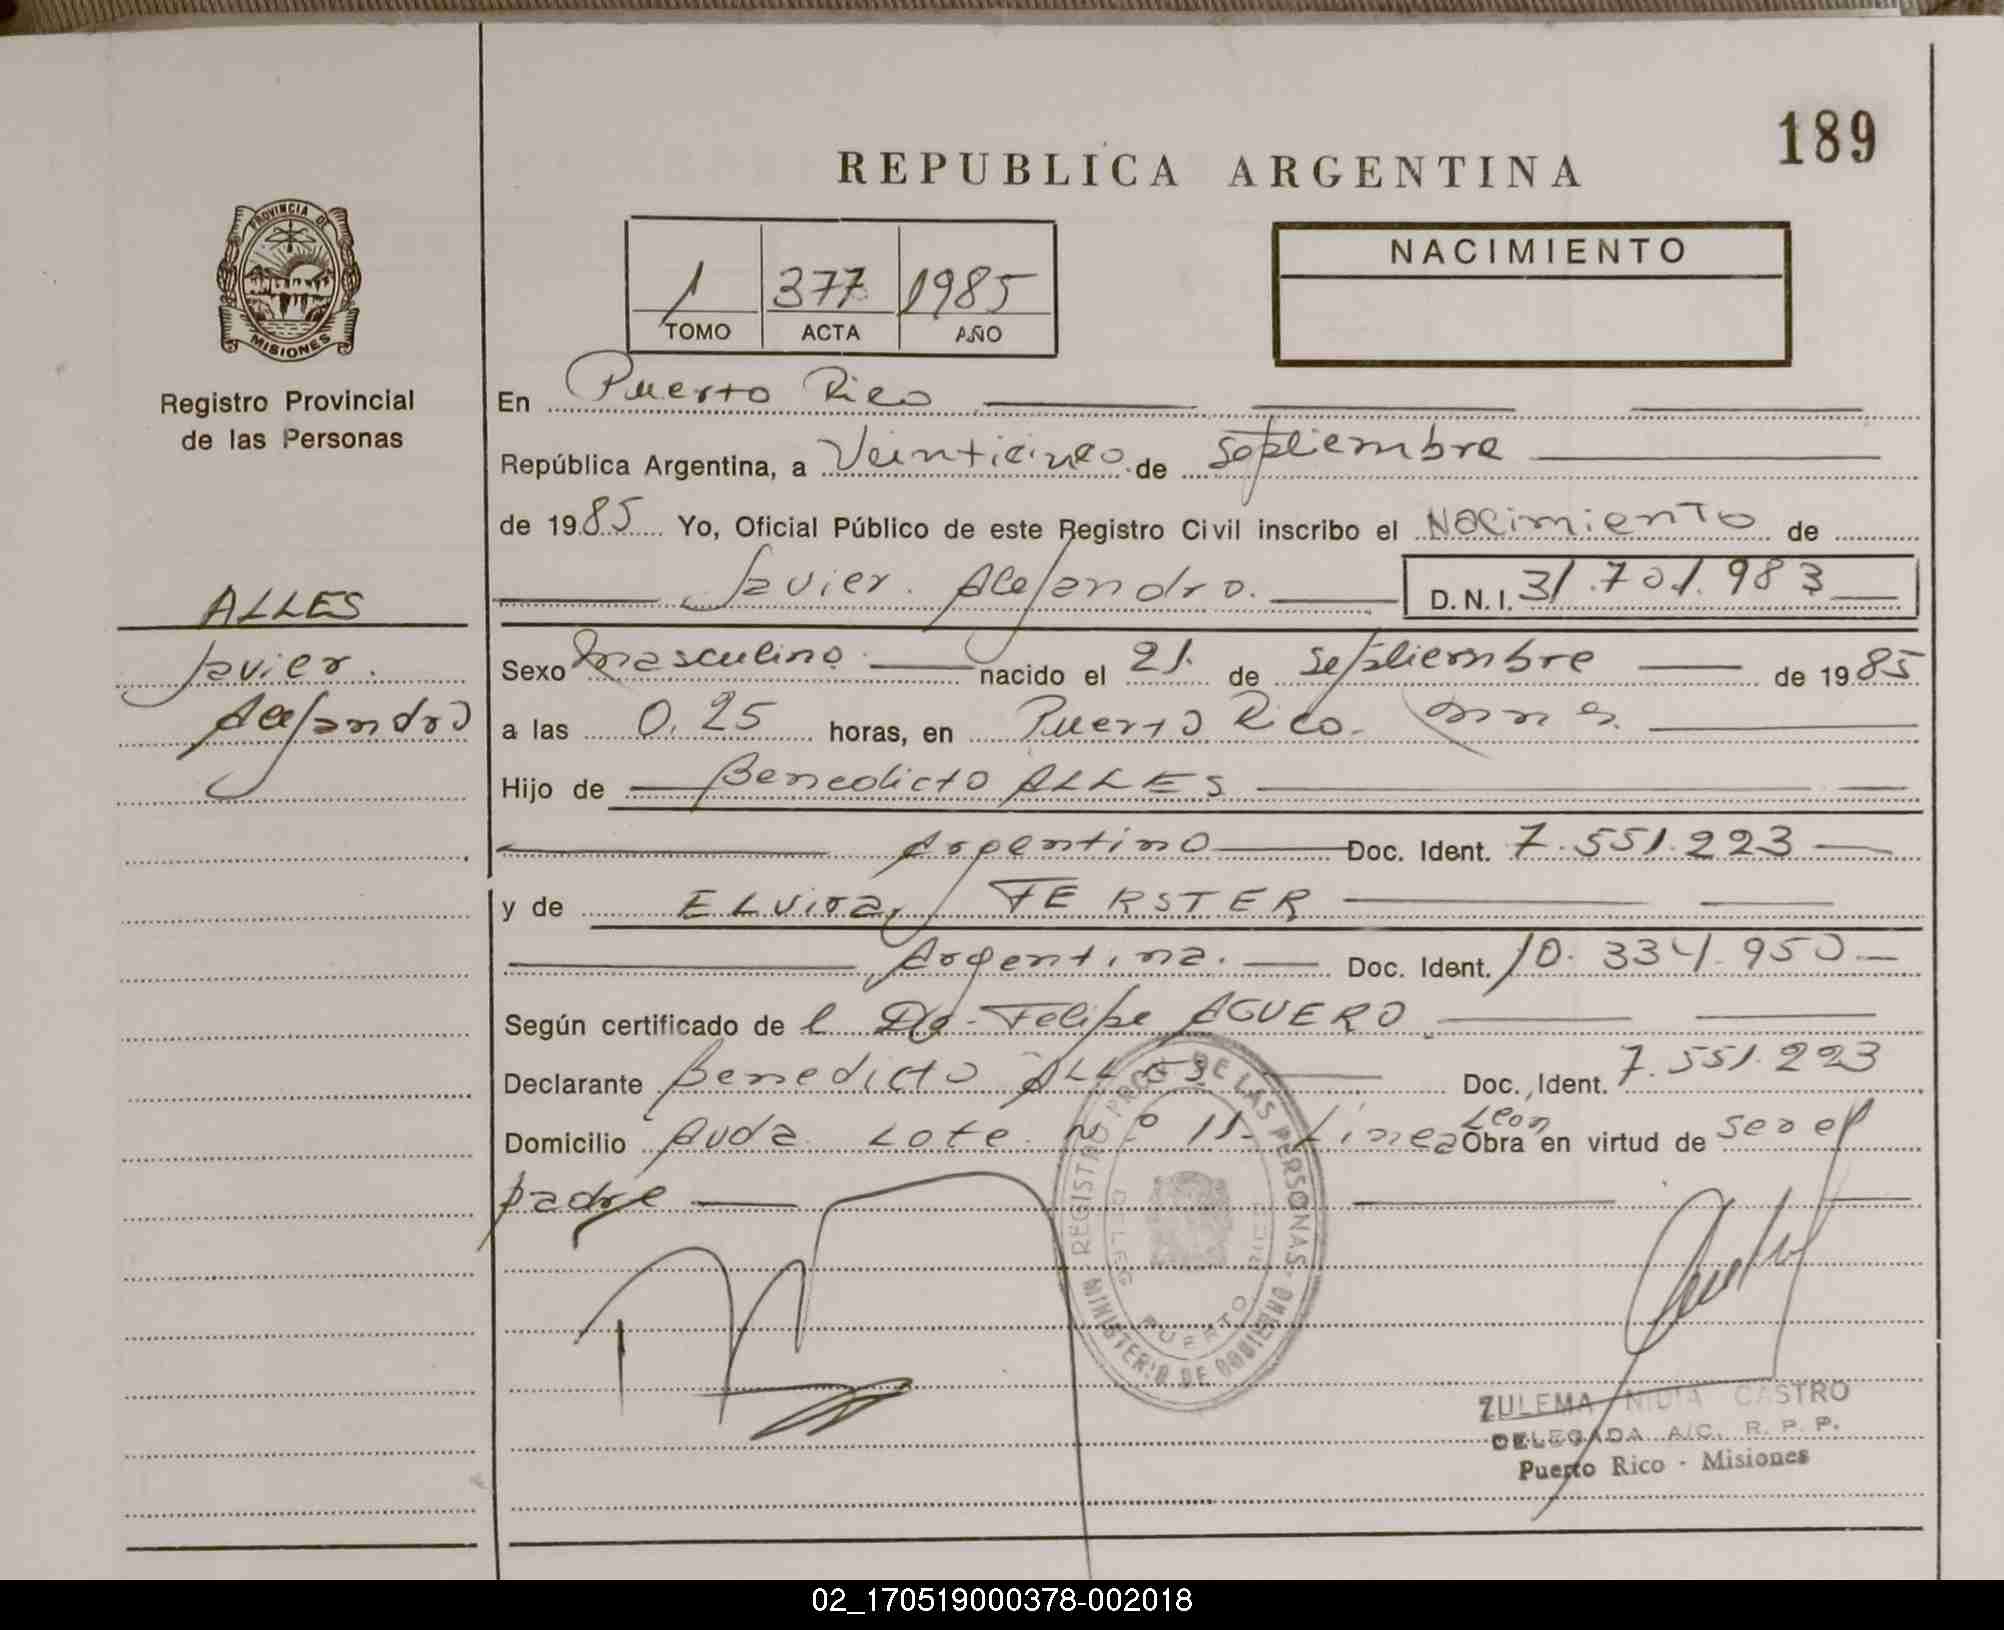 189
REPUBLICA ARGENTINA
PROVINCIA DE
MISIONES
Registro Provincial
de las Personas
NACIMIENTO
1 377 1985
TOMO ACTA AÑO
En Puerto Rico
República Argentina, a Veinticinco de Septiembre
de 1985 Yo, Oficial Público de este Registro Civil inscribo el Nacimiento de
Javier Alejandro. D.N.I. 31.701.983
ALLES
Javier
Alejandro
Sexo masculino nacido el 21 de Septiembre de 1985
a las 0.25 horas, en Puerto Rico. Mnes.
Hijo de Benedicto ALLES
Argentino Doc. Ident. 7.551.223
y de ELvira, FERSTER
Argentina. Doc. Ident. 10.334.950
Según certificado de l Dr. Felipe AGUERO
Declarante Benedicto ALLES Doc. Ident. 7.551.223
Domicilio Avda. Lote nº 11 Linea Leon Obra en virtud de ser el
padre
REGISTRO PROV. DE LAS PERSONAS
MINISTERIO DE GOBIERNO
DELEG PUERTO RICO
ZULEMA NIDIA CASTRO
DELEGADA A/C. R. P. P.
Puerto Rico - Misiones
02_170519000378-002018